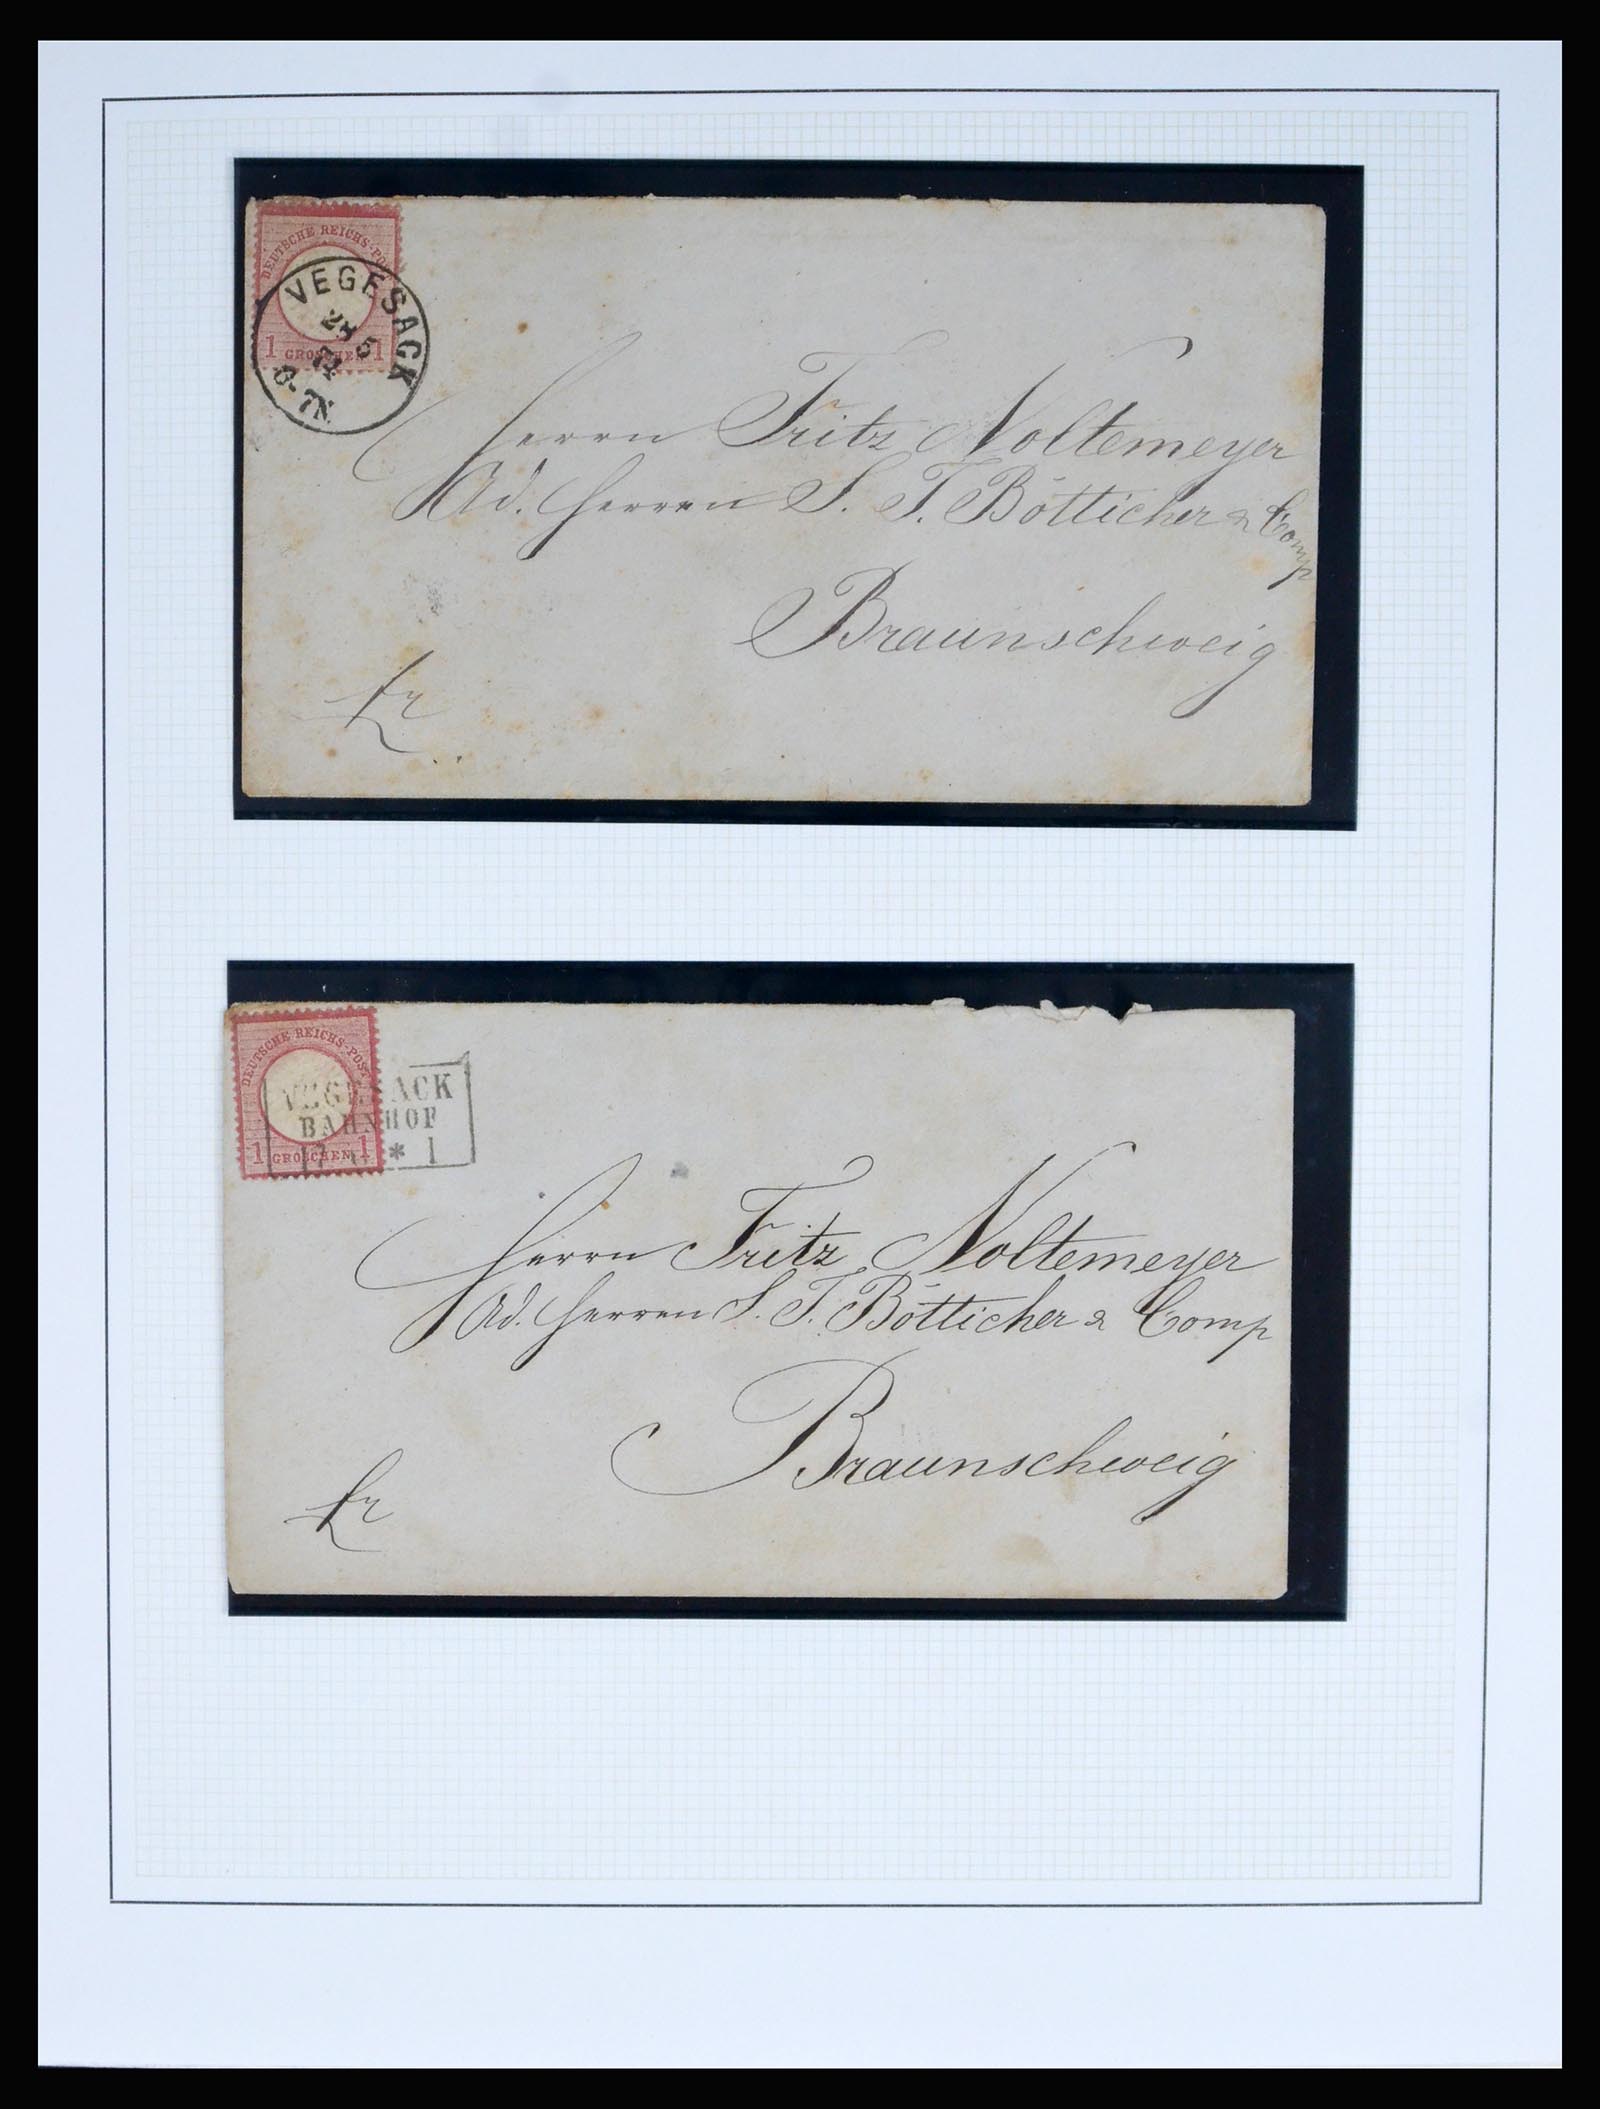 DEUTSCHE REICHS-POST
1 GROSCHEN 1
VEGESACK
6-7N.
Herrn Fritz Noltemeyer
Ad. Herren S. T. Bötticher & Comp
Braunschweig
fr
DEUTSCHE REICHS-POST
1 GROSCHEN 1
VEGESACK
BAHNHOF
* 1
Herrn Fritz Noltemeyer
Ad. Herren S. T. Bötticher & Comp
Braunschweig
fr